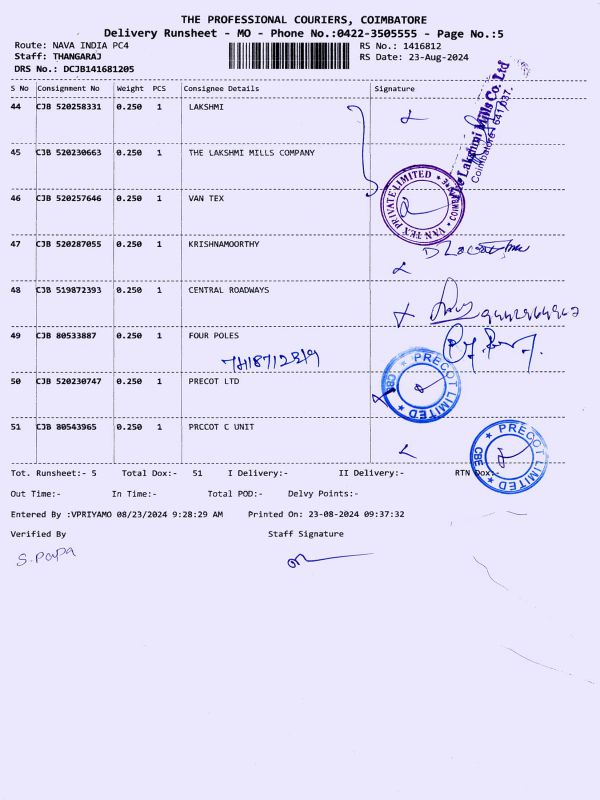 THE PROFESSIONAL COURIERS, COIMBATORE
Delivery Runsheet - MO - Phone No.:0422-3505555 - Page No.:5
Route: NAVA INDIA PC4 RS No.: 1416812
Staff: THANGARAJ RS Date: 23-Aug-2024
DRS No.: DCJB141681205
S No Consignment No Weight PCS Consignee Details Signature
44 CJB 520258331 0.250 1 LAKSHMI
The Lakshmi Mills Co. Ltd
Coimbatore - 641 037.
45 CJB 520230663 0.250 1 THE LAKSHMI MILLS COMPANY
46 CJB 520257646 0.250 1 VAN TEX
VAN TEX PRIVATE LIMITED
47 CJB 520287055 0.250 1 KRISHNAMOORTHY
48 CJB 519872393 0.250 1 CENTRAL ROADWAYS
49 CJB 80533887 0.250 1 FOUR POLES
50 CJB 520230747 0.250 1 PRECOT LTD
PRECOT LIMITED CBE
51 CJB 80543965 0.250 1 PRCCOT C UNIT
PRECOT LIMITED CBE
Tot. Runsheet:- 5 Total Dox:- 51 I Delivery:- II Delivery:- RTN Dox:-
Out Time:- In Time:- Total POD:- Delvy Points:-
Entered By :VPRIYAMO 08/23/2024 9:28:29 AM Printed On: 23-08-2024 09:37:32
Verified By Staff Signature
S. Papa